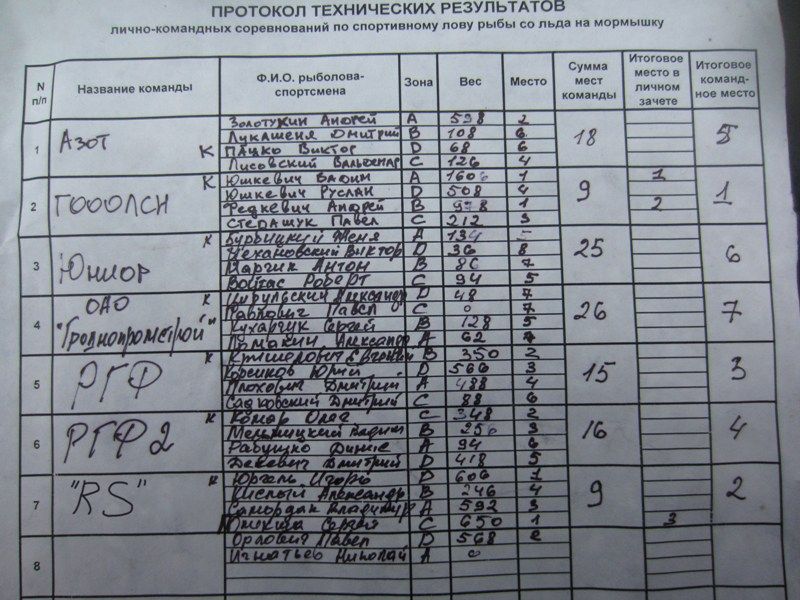 ПРОТОКОЛ ТЕХНИЧЕСКИХ РЕЗУЛЬТАТОВ
лично-командных соревнований по спортивному лову рыбы со льда на мормышку
N п/п Название команды Ф.И.О. рыболова-спортсмена Зона Вес Место Сумма мест команды Итоговое место в личном зачете Итоговое команд-ное место
1 Азот К 18 5
Золотухин Андрей А 598 2
Лукашеня Дмитрий В 108 6
Пацко Виктор D 68 6
Лисовский Вальдемар С 126 4
2 ГОООЛСИ К 9 1
Юшкевич Вадим А 1606 1 1
Юшкевич Руслан D 508 4
Федкевич Андрей В 978 1 2
Степашук Павел С 212 3
3 Юниор К 25 6
Женя А 134 5
Чехановский Виктор D 36 8
Марчик Антон В 86 7
Войтас Роберт С 94 5
4 ОАО "Гроднопромстрой" К 26 7
Цирульский Александр D 48 7
Павлович Павел С 0 7
Кухарчук Сергей В 128 5
Ломакин Александр А 62 7
5 РГФ К 15 3
Евгений В 350 2
Корсиков Юрий D 566 3
Плохович Дмитрий А 488 4
Садковский Дмитрий С 88 6
6 РГФ2 К 16 4
Комар Олег С 348 2
Мельницкий Вадим В 250 3
Рабушко А 94 6
Декевич Дмитрий D 418 5
7 "RS" К 9 2
Юргель Игорь D 606 1
Кислый Александр В 246 4
Самордак Владимир А 592 3
Сергей С 650 1 3
8
Орлович Павел D 568 2
Игнатьев Николай А 0